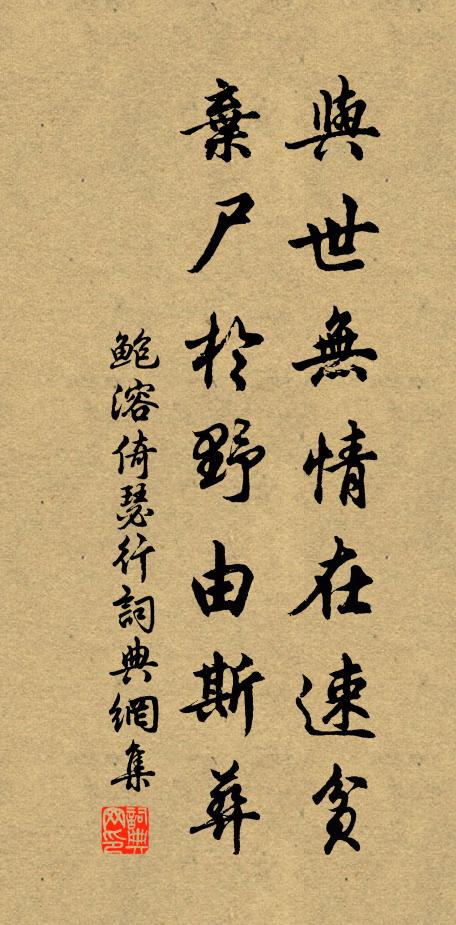 與世無情在速貧
棄尸於野由斯葬
鮑溶倚瑟行詞典網集
詞典网印